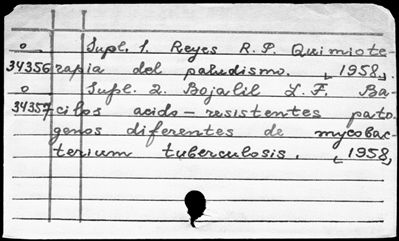 o Supl. 1. Reyes R. P. Quimiote-
34356 rapia del paludismo. [1958]
o Supl. 2. Bojalil L. F. Ba-
34357 cilos acido-resistentes pato
genos diferentes de mycobac-
terium tuberculosis. [1958]